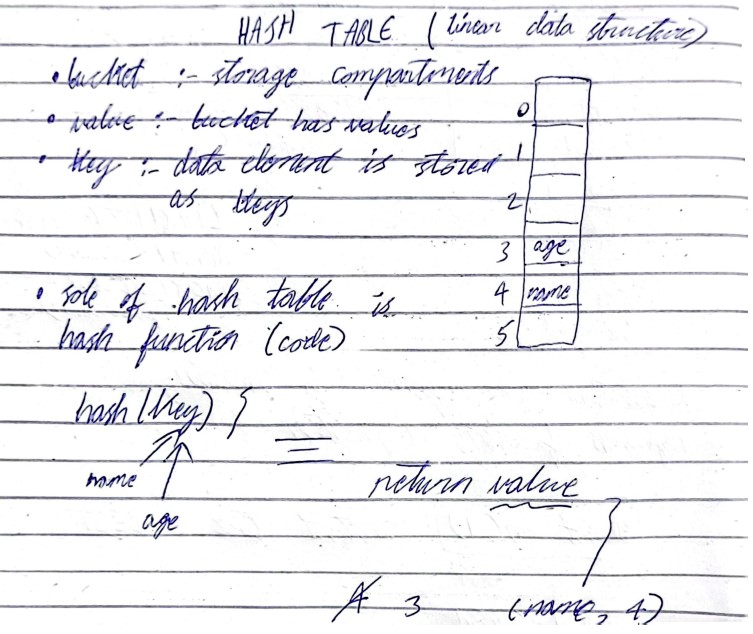 HASH TABLE (linear data structure)
• bucket :- storage compartments
• value :- bucket has values
• key :- data element is stored
as keys
0
1
2
3 age
4 name
5
• sole of hash table is
hash function (code)
hash (key) {
name
age
return value
3 (name, 4)